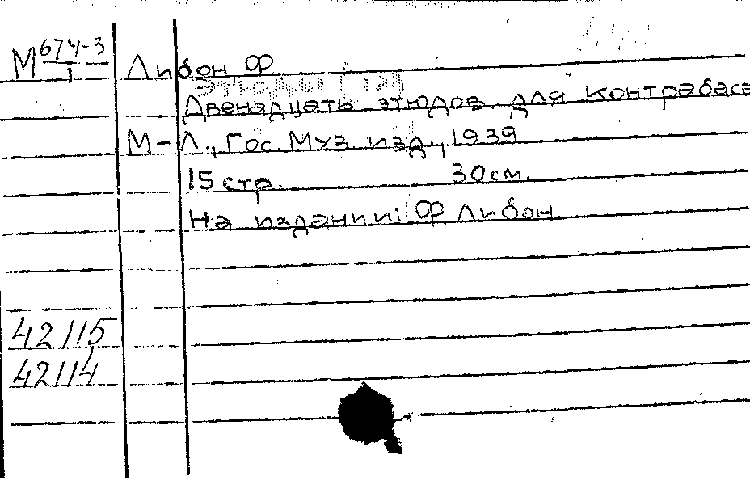 М 674-3 Либон Ф
1
Двенадцать этюдов для контрабаса
М-Л., Гос. Муз. изд., 1939
15 стр. 30 см.
На издании: Ф Либон
42115
42114